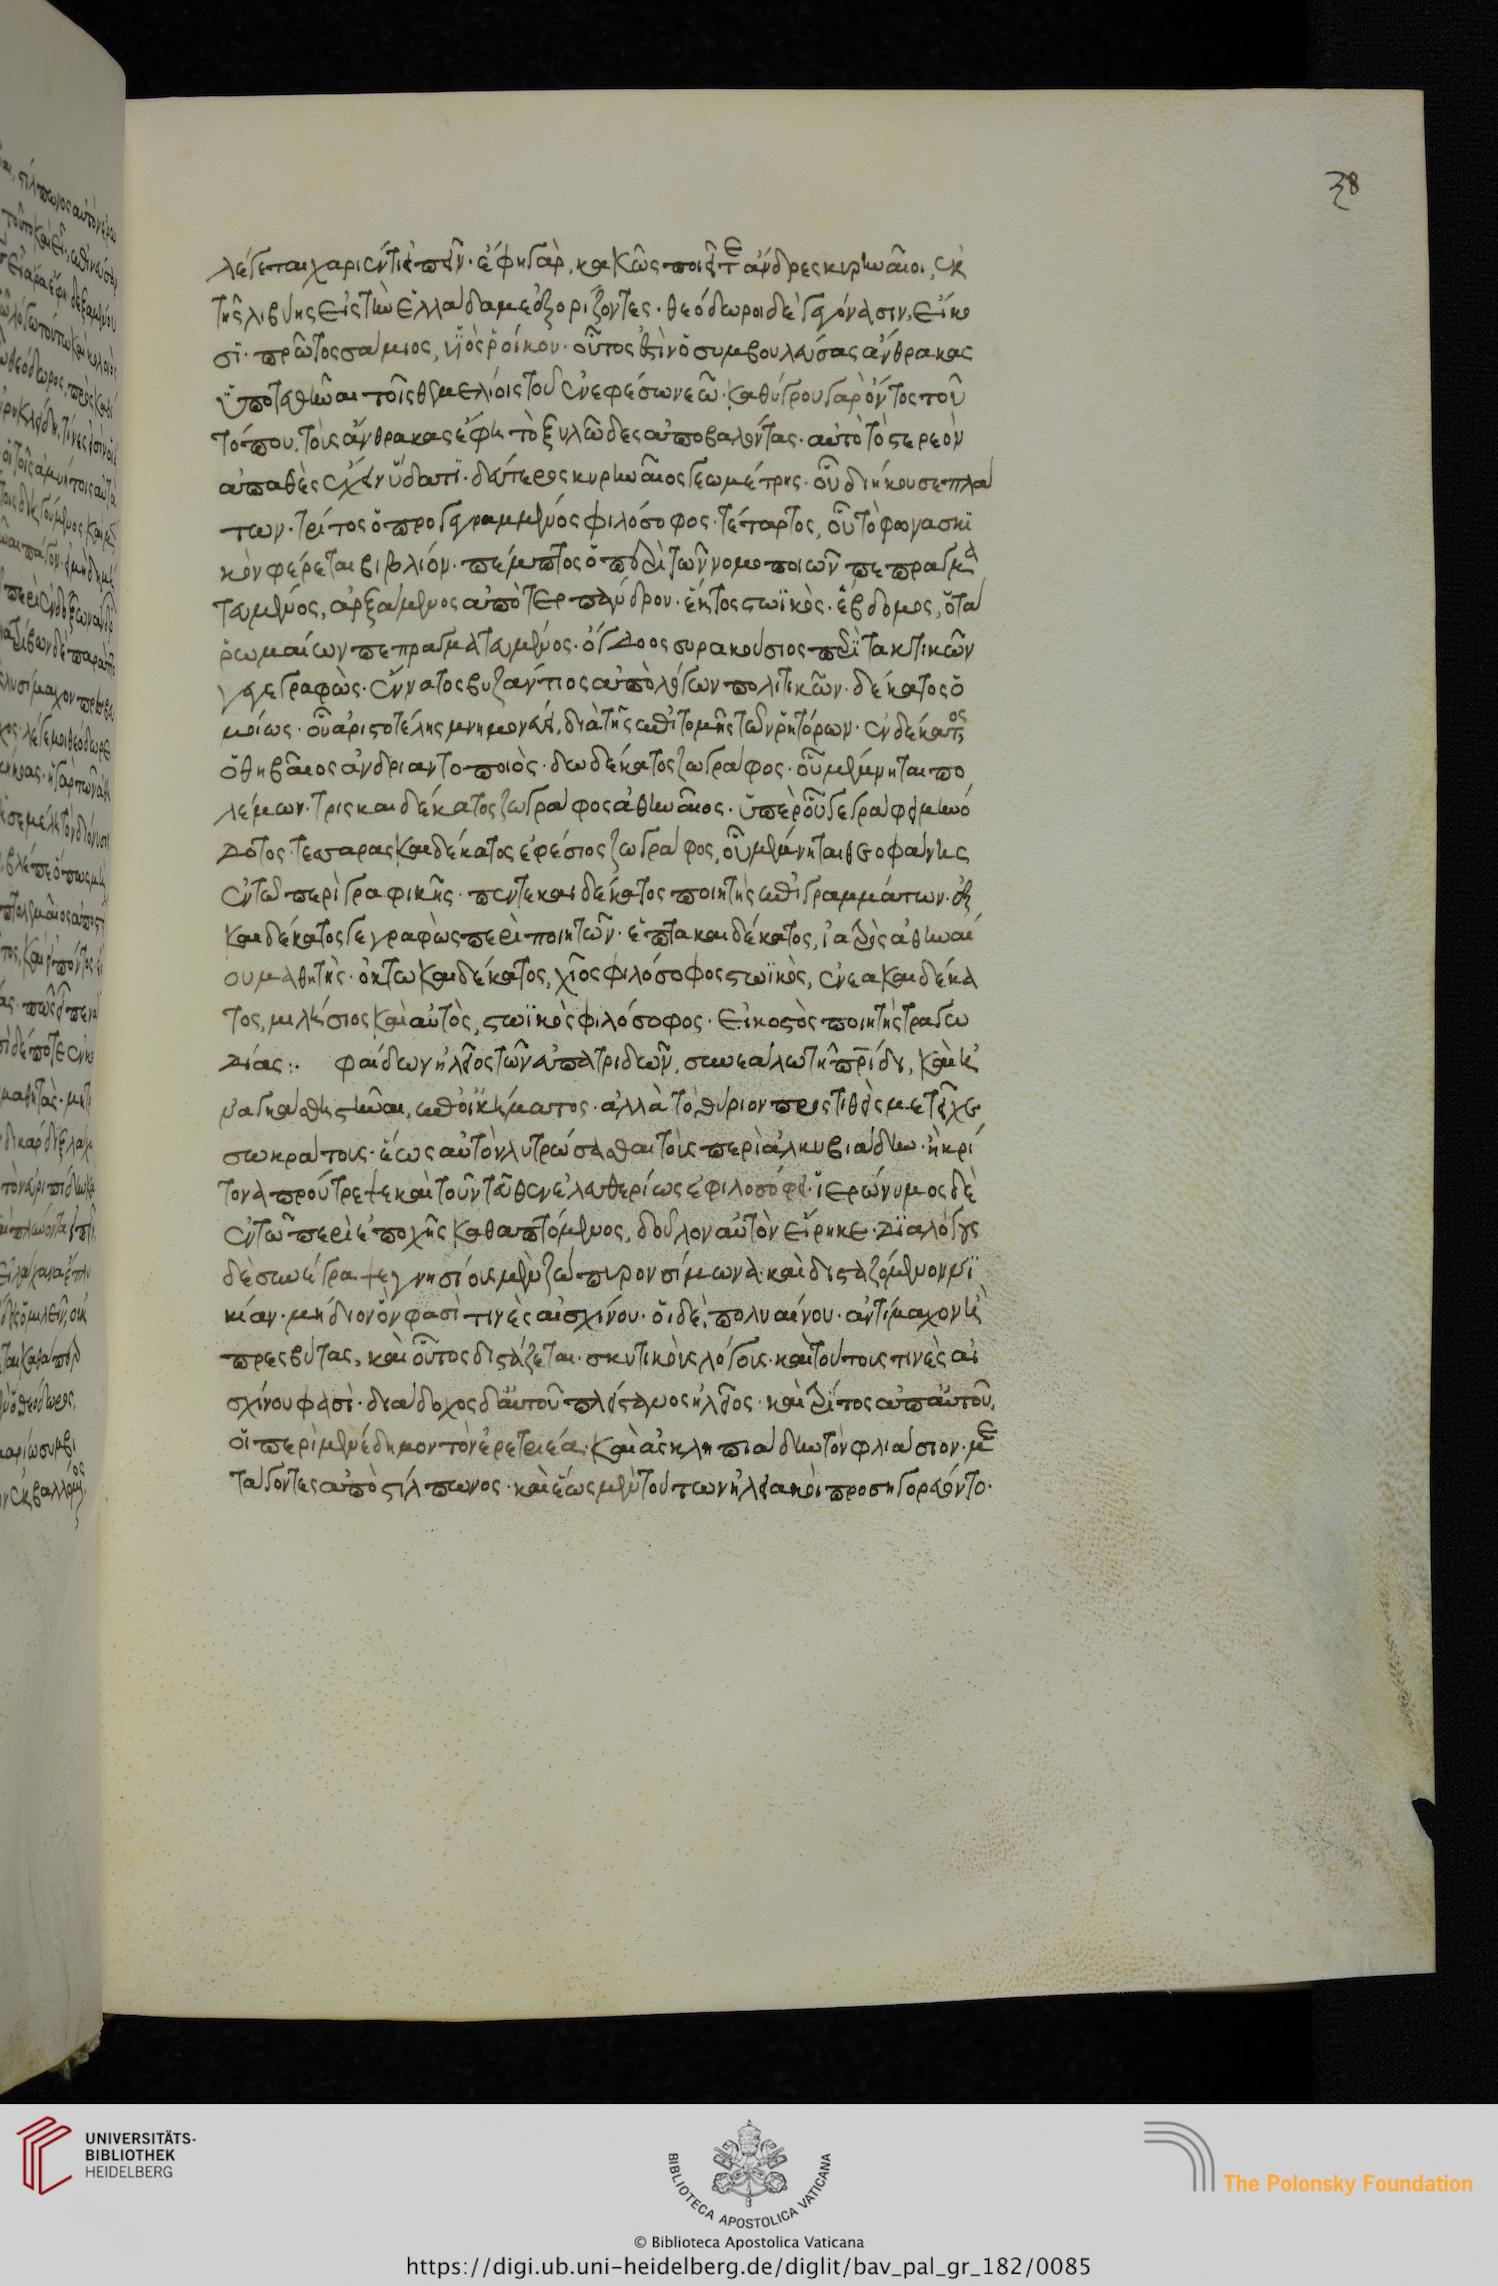 38
λέγεται χαρίεντι εἰπεῖν· ἔφη γὰρ, κακῶς ποιεῖτε ἄνδρες κυρηναῖοι, ἐκ
τῆς λιβύης εἰς τὴν ἑλλάδα με ἐξορίζοντες· θεόδωροι δὲ γεγόνασιν, εἴκο
σι· πρῶτος σάμιος, υἱὸς ῥοίκου· οὗτος ἐστὶν ὁ συμβουλεύσας ἄνθρακας
ὑποτεθῆναι τοῖς θεμελίοις τοῦ ἐν ἐφέσω νεῶ· καθύγρου γὰρ ὄντος τοῦ
τόπου, τοὺς ἄνθρακας ἔφη τὸ ξυλῶδες ἀποβαλόντας· αὐτὸ τὸ στερεὸν
ἀπαθὲς ἔχειν ὕδατι· δεύτερος κυρηναῖος γεωμέτρης· οὗ διήκουσε πλά
των· τρίτος ὁ προγεγραμμένος φιλόσοφος· τέταρτος, οὗ τὸ φωνασκι
κὸν φέρεται βιβλίον· πέμπτος ὁ περὶ τῶν νομοποιῶν πεπραγμα
τευμένος, ἀρξάμενος ἀπὸ τερπάνδρου· ἕκτος στωϊκὸς· ἕβδομος, ὁ τὰ
ῥωμαίων πεπραγματευμένος· ὄγδοος συρακούσιος περὶ τακτικῶν
γεγραφὼς· ἔννατος βυζάντιος ἀπὸ λόγων πολιτικῶν· δέκατος ὁ
μοίως· οὗ ἀριστοτέλης μνημονεύει, διὰ τῆς ἐπιτομῆς τῶν ῥητόρων· ἑνδέκατος
ὁ θηβαῖος ἀνδριαντοποιὸς· δωδέκατος ζωγράφος· οὗ μέμνηται πο
λέμων· τρισκαιδέκατος ζωγράφος ἀθηναῖος· ὑπὲρ οὗ γέγραφε μηνό
δοτος· τεσσαρασκαιδέκατος ἐφέσιος ζωγράφος, οὗ μέμνηται θεοφάνης
ἐν τῶ περὶ γραφικῆς· πεντεκαιδέκατος ποιητὴς ἐπιγραμμάτων· ἑξ
καιδέκατος γεγραφὼς περὶ ποιητῶν· ἑπτακαιδέκατος, ἰατρὸς ἀθηναί
ου μαθητὴς· ὀκτωκαιδέκατος, χῖος φιλόσοφος στωϊκὸς, ἐνεακαιδέκα
τος, μιλήσιος καὶ αὐτὸς, στωϊκὸς φιλόσοφος· εἰκοστὸς ποιητὴς τραγω
δίας:· φαίδων ἠλεῖος τῶν εὐπατριδῶν, συνεάλω τῆ πρίδι, καὶ ἠ
ναγκάσθη στῆναι, ἐπ᾽ οἰκήματος· ἀλλὰ τὸ θύριον προστιθεὶς μετεῖχε
σωκράτους· ἕως αὐτὸν λυτρώσασθαι τοὺς περὶ ἀλκυβιάδην· ἢ κρί
τονα προύτρεψε καὶ τοῦντεῦθεν ἐλευθερίως ἐφιλοσόφει· ἱερώνυμος δὲ
ἐν τῶ περὶ ἐποχῆς καθαπτόμενος, δοῦλον αὐτὸν εἴρηκε· διαλόγους
δὲ συνέγραψε γνησίους μὲν ζώπυρον σίμωνα· καὶ δισταζόμενον νι
κίαν· μήδιον ὃν φασὶ τινὲς αἰσχίνου· οἱ δὲ, πολυαίνου· ἀντίμαχον ἢ
πρεσβύτας, καὶ οὗτος διστάζεται· σκυτικοὺς λόγους· καὶ τούτους τινὲς αἰ
σχίνου φασὶ· διάδοχος δ᾽ αὐτοῦ πλείστανος ἠλεῖος· καὶ τρίτος ἀπ᾽ αὐτοῦ,
οἱ περὶ μενέδημον τὸν ἐρετριέα· καὶ ἀσκληπιάδην τὸν φλιάσιον· με
τάγοντες ἀπὸ στίλπωνος· καὶ ἕως μὲν τούτων ἠλειακοὶ προσηγορεύοντο·
UNIVERSITÄTS-
BIBLIOTHEK
HEIDELBERG
BIBLIOTECA APOSTOLICA VATICANA
© Biblioteca Apostolica Vaticana
The Polonsky Foundation
https://digi.ub.uni-heidelberg.de/diglit/bav_pal_gr_182/0085